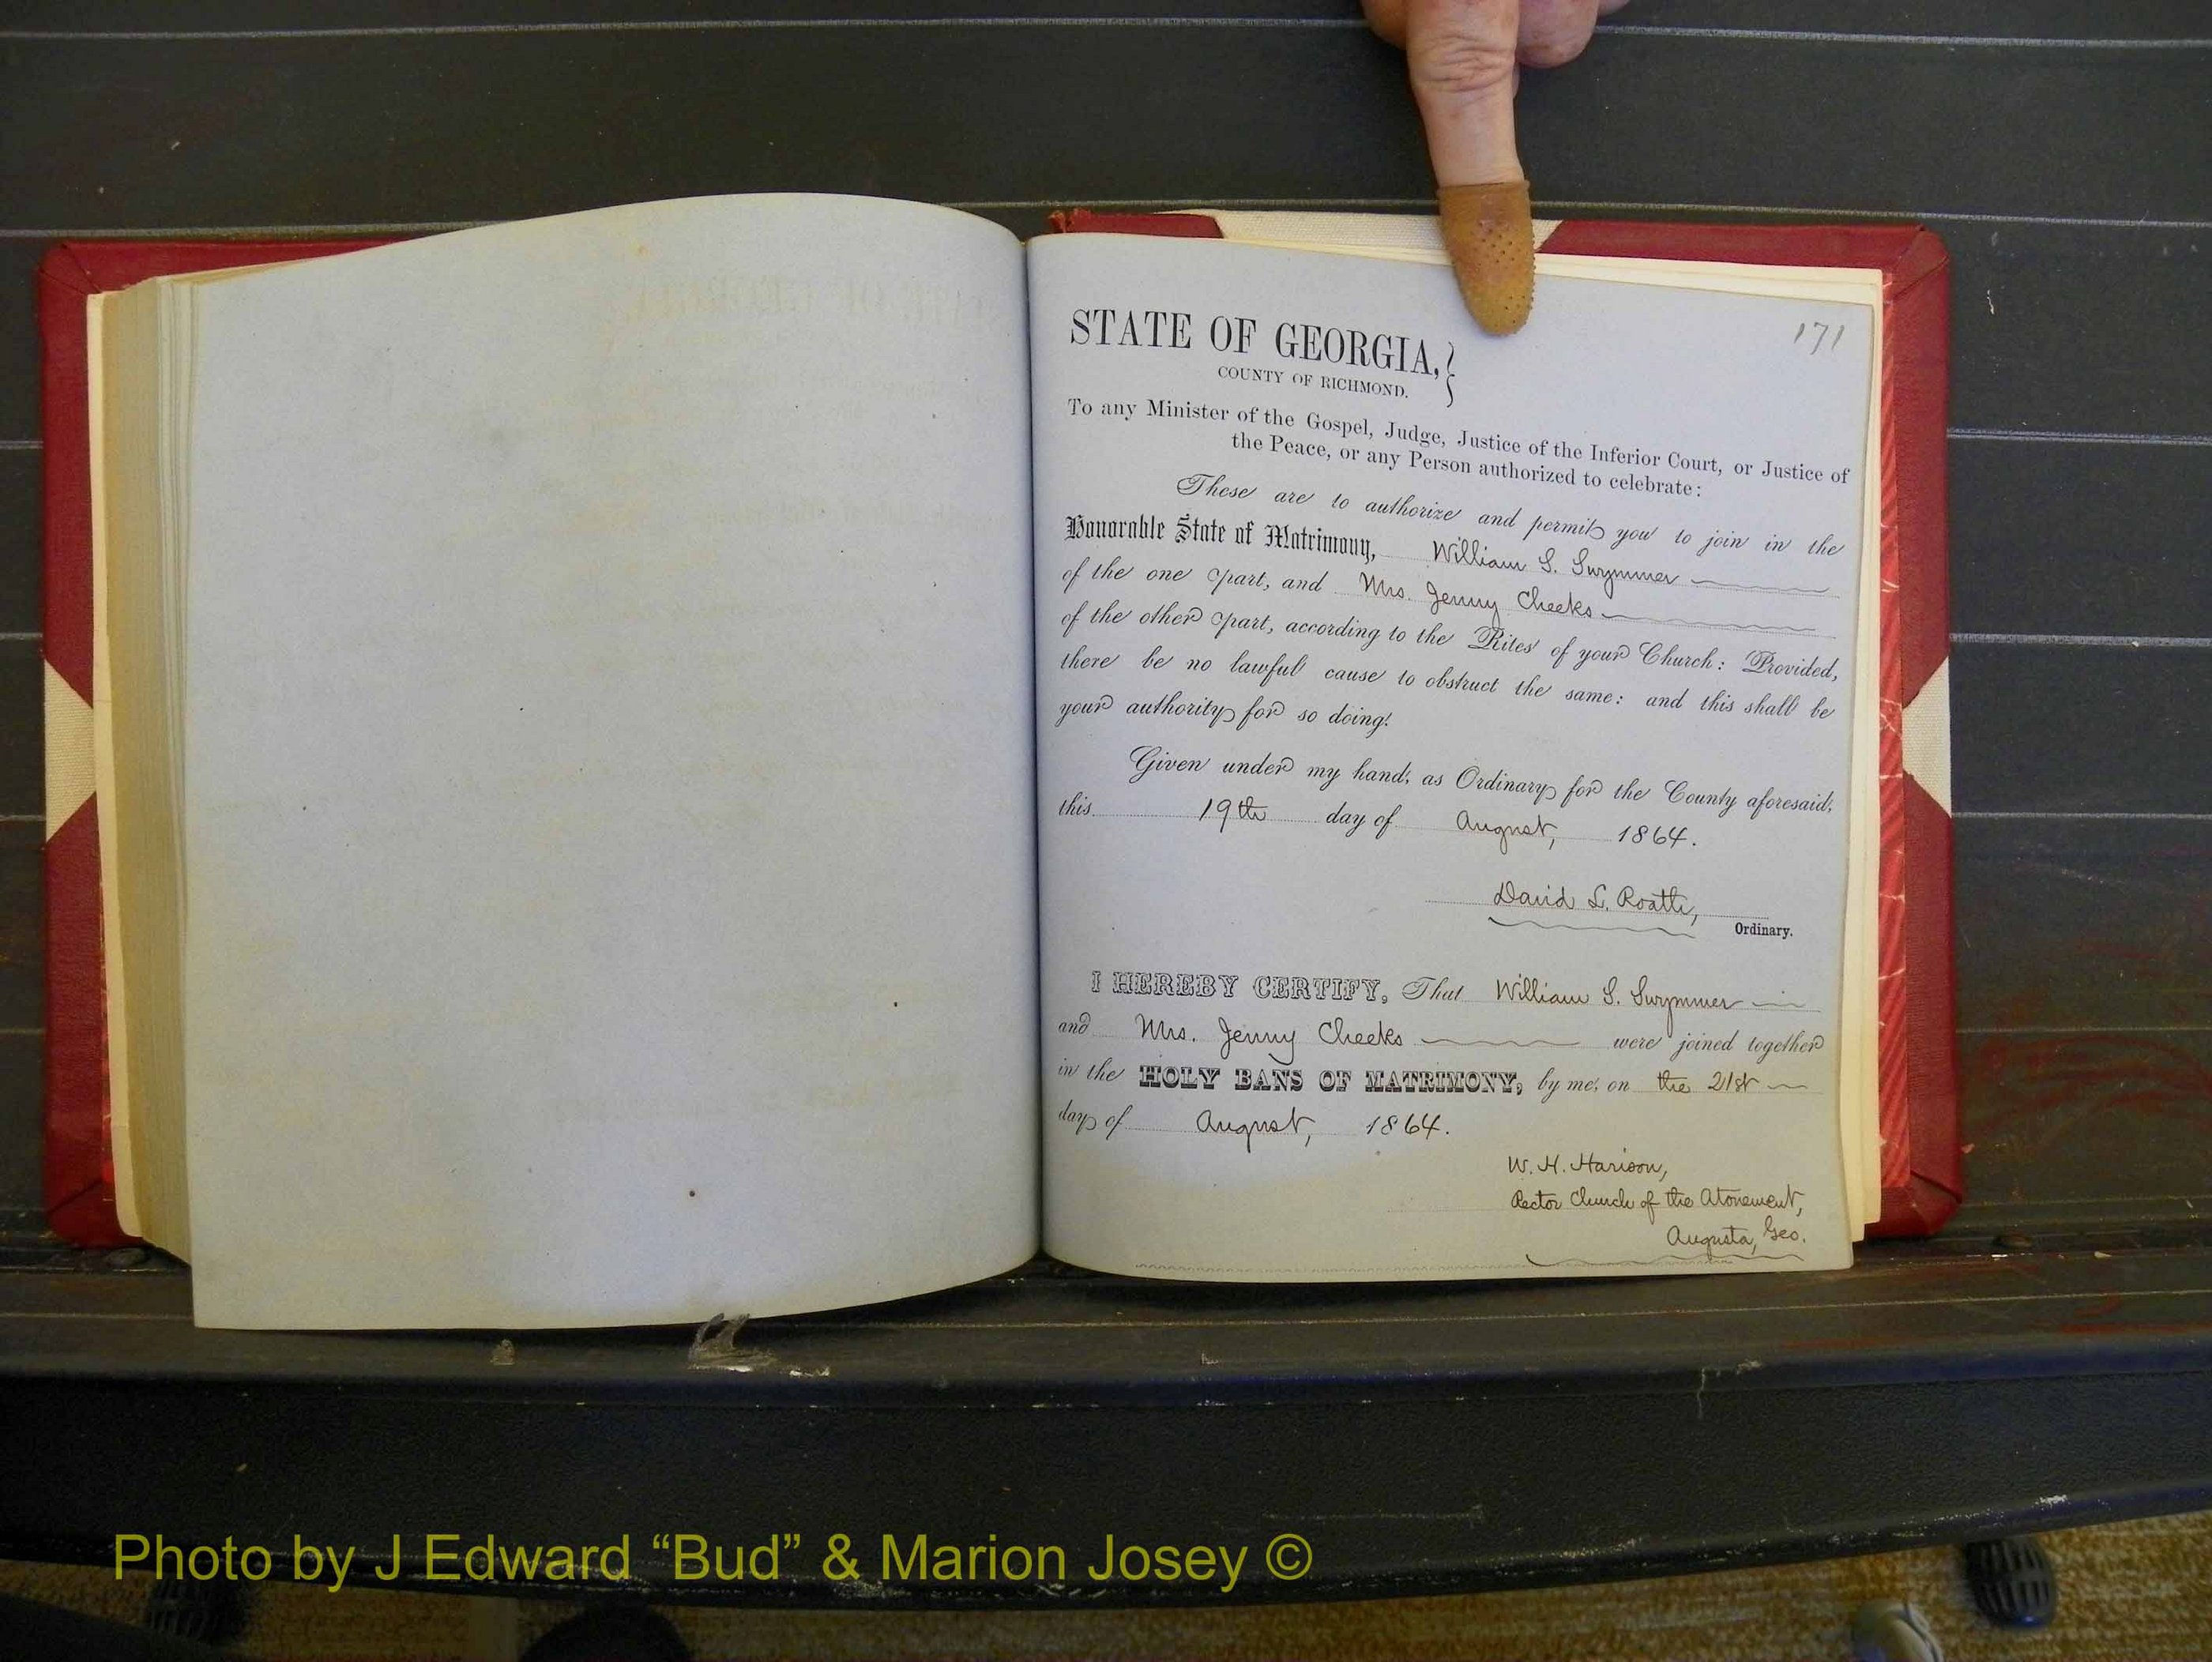 171
STATE OF GEORGIA,
COUNTY OF RICHMOND.
To any Minister of the Gospel, Judge, Justice of the Inferior Court, or Justice of
the Peace, or any Person authorized to celebrate:
These are to authorize and permit you to join in the
Honorable State of Matrimony, William S. Swymmer
of the one part, and Mrs. Jenny Cheeks
of the other part, according to the Rites of your Church: Provided,
there be no lawful cause to obstruct the same: and this shall be
your authority for so doing.
Given under my hand, as Ordinary for the County aforesaid,
this 19th day of August, 1864.
David L. Roath,
Ordinary.
I HEREBY CERTIFY, That William S. Swymmer
and Mrs. Jenny Cheeks were joined together
in the HOLY BANS OF MATRIMONY, by me, on the 21st
day of August, 1864.
W. H. Harison,
Rector Church of the Atonement,
Augusta, Geo.
Photo by J Edward “Bud” & Marion Josey ©